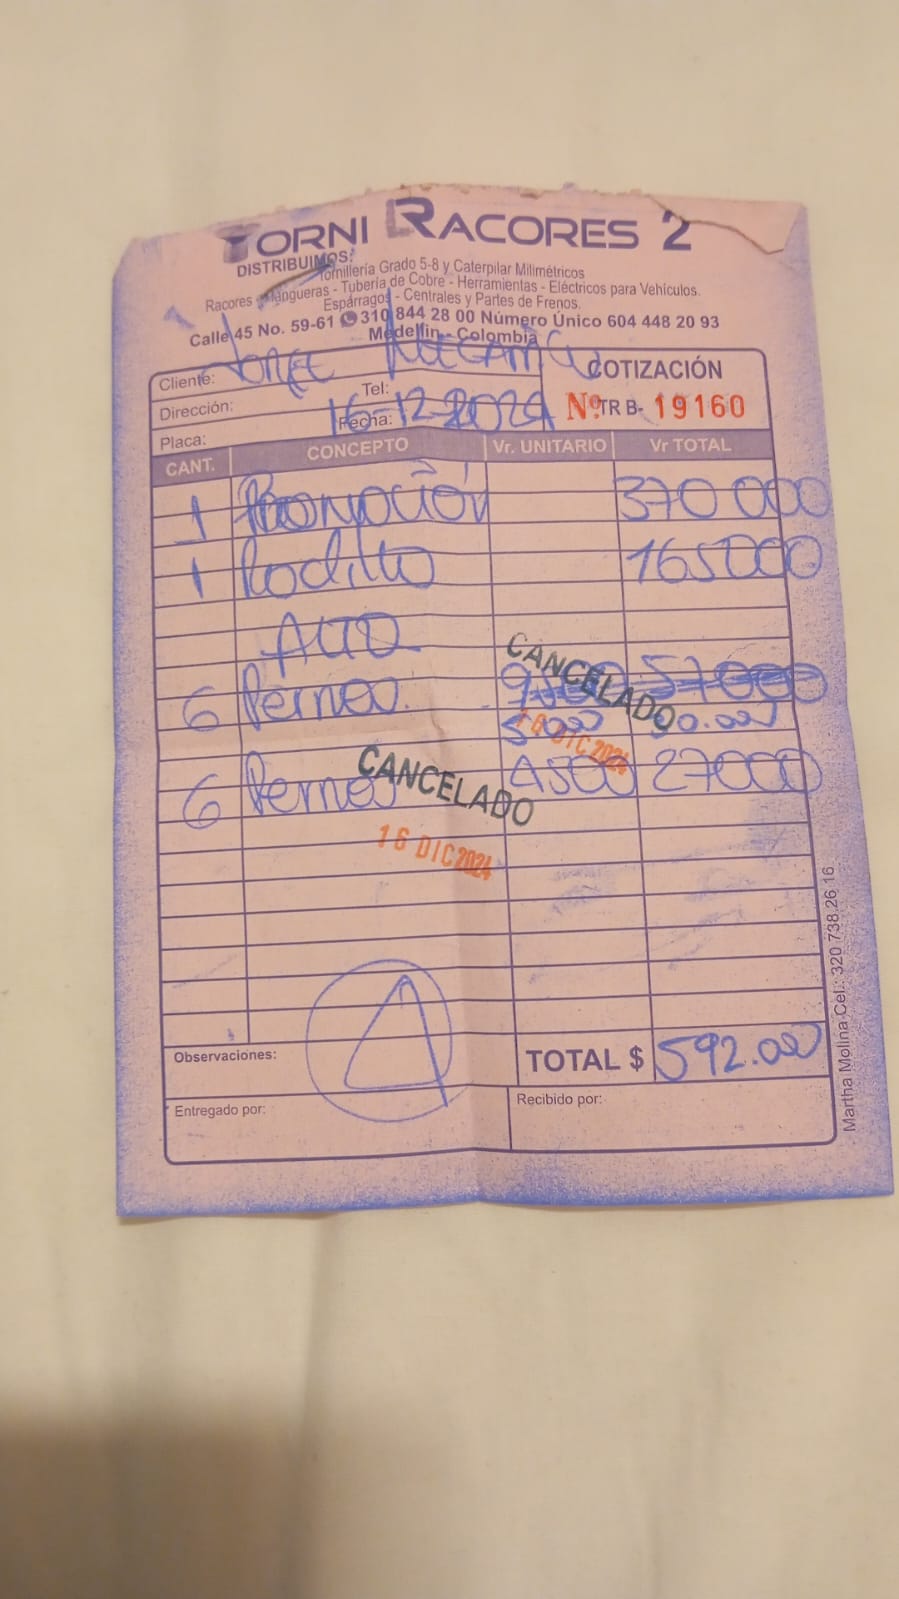 TORNI RACORES 2
DISTRIBUIMOS:
Tornillería Grado 5-8 y Caterpilar Milimétricos
Racores - Mangueras - Tubería de Cobre - Herramientas - Eléctricos para Vehículos.
Espárragos - Centrales y Partes de Frenos.
Calle 45 No. 59-61 310 844 28 00 Número Único 604 448 20 93
Medellín - Colombia
Cliente:
COTIZACIÓN
Dirección: Tel:
Nº TR B- 19160
Placa: Fecha: 16-12-2024
CANT. CONCEPTO Vr. UNITARIO Vr TOTAL
1 Promoción 370 000
1 Rodillo 165000
Alto
6 Pernos. 57000
CANCELADO
16 DIC 2024
5000 30.000
6 Pernos 4500 27000
CANCELADO
16 DIC 2024
Observaciones:
TOTAL $ 592.000
Entregado por: Recibido por:
Martha Molina Cel.: 320 738 26 16